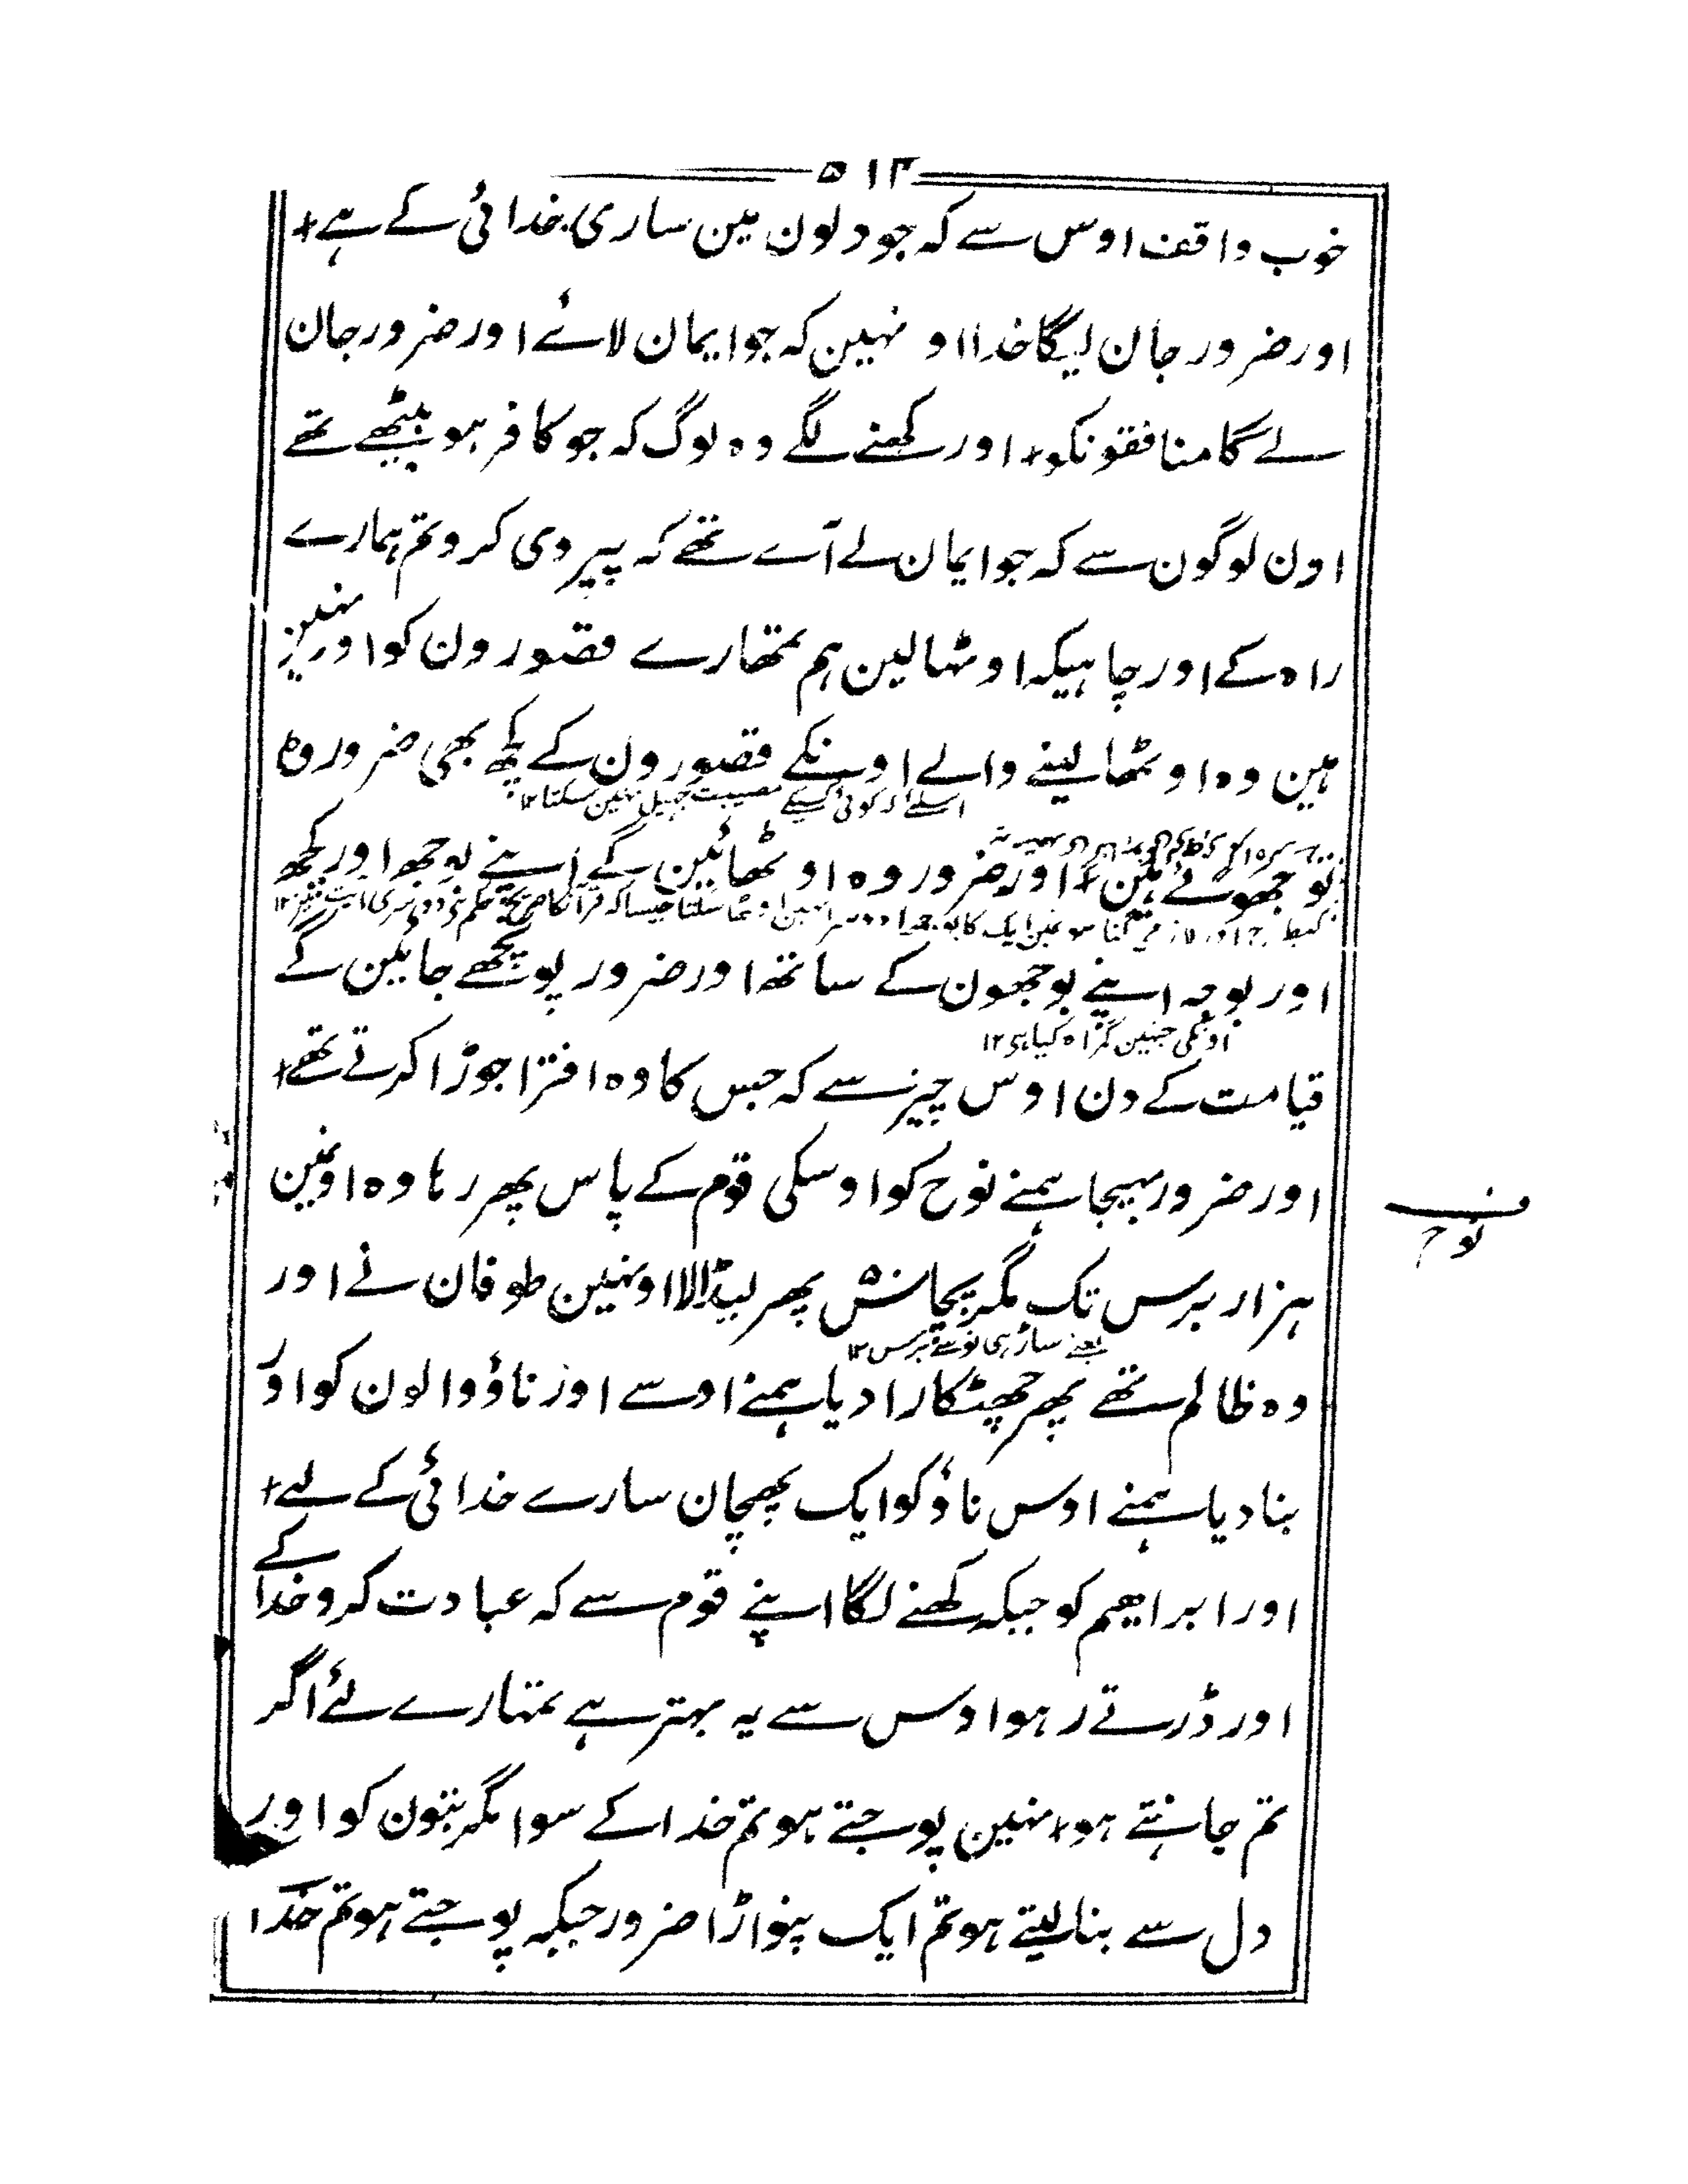 ۵۱۳
خوب واقف اوس سے کہ جو دلون مین ساری خدائی کے ہے +
اور ضرور جان لیگا خدا اونہین کہ جو ایمان لائے اور ضرور جان
لے گا منافقونکو + اور کھنے لگے وہ لوگ کہ جو کافر ہو بیٹھے تھے
اون لوگون سے کہ جو ایمان لے آے تھے کہ پیروی کرو تم ہمارے
راہ کے اور چاہیکہ اوٹہالین ہم تمھارے قصورون کو اور نہین
ہین وہ اوٹھا لینے والے اونکے قصورون کے کچھ بھی ضرور وہ
اسلئے کہ کوئی کسیکے مصیبت جہیل نہین سکتا ۱۲
تو جھوٹے ہین + اور ضرور وہ اوٹھائین گے اپنے بوجھ اور کچھ
اور بوجہ اپنے بوجھون کے ساتھ اور ضرور پوچھے جائین گے
اونکی جنہین گمراہ کیا ہی ۱۲
قیامت کے دن اوس چیز سے کہ جس کا وہ افترا جوڑا کرتے تھے +
اور ضرور بہیجا ہمنے نوح کو اوسکی قوم کے پاس پھر رہا وہ اونمین
نوح
ہزار برس تک مگر پچانش پھر لیڈالا اونہین طوفان نے اور
یعنے ساڑہی نوسے برس ۱۲
وہ ظالم تھے پھر چھٹکارا دیا ہمنے اوسے اور ناؤ والون کو اور
بنا دیا ہمنے اوس ناؤ کو ایک پھچان سارے خدائی کے لیے +
اور ابراھیم کو جبکہ کھنے لگا اپنے قوم سے کہ عبادت کرو خدا کے
اور ڈرتے رہو اوس سے یہ بہتر ہے تمہارے لئے اگر
تم جانتے ہو + نہین پوجتے ہو تم خدا کے سوا مگر بتون کو اور
دل سے بنا لیتے ہو تم ایک پنواڑا ضرور جبکہ پوجتے ہو تم خدا